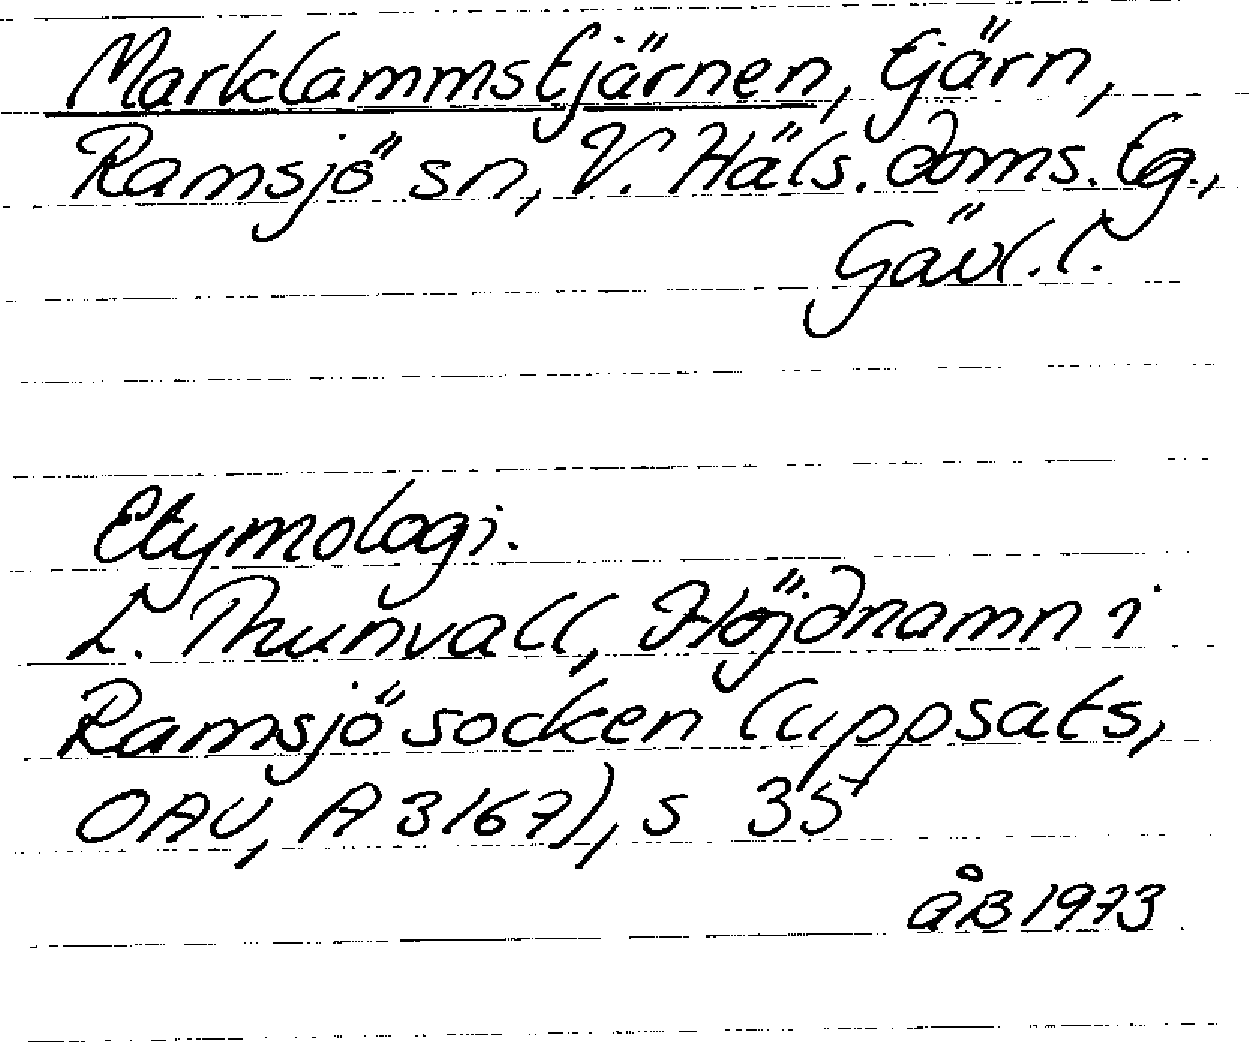 Marklammstjärnen, tjärn,
Ramsjö sn, V. Häls. doms. tg.,
Gävl. l.
Etymologi.
L. Thunvall, Höjdnamn i
Ramsjö socken (uppsats,
OAU, A 3167), s 35
ÅB 1973